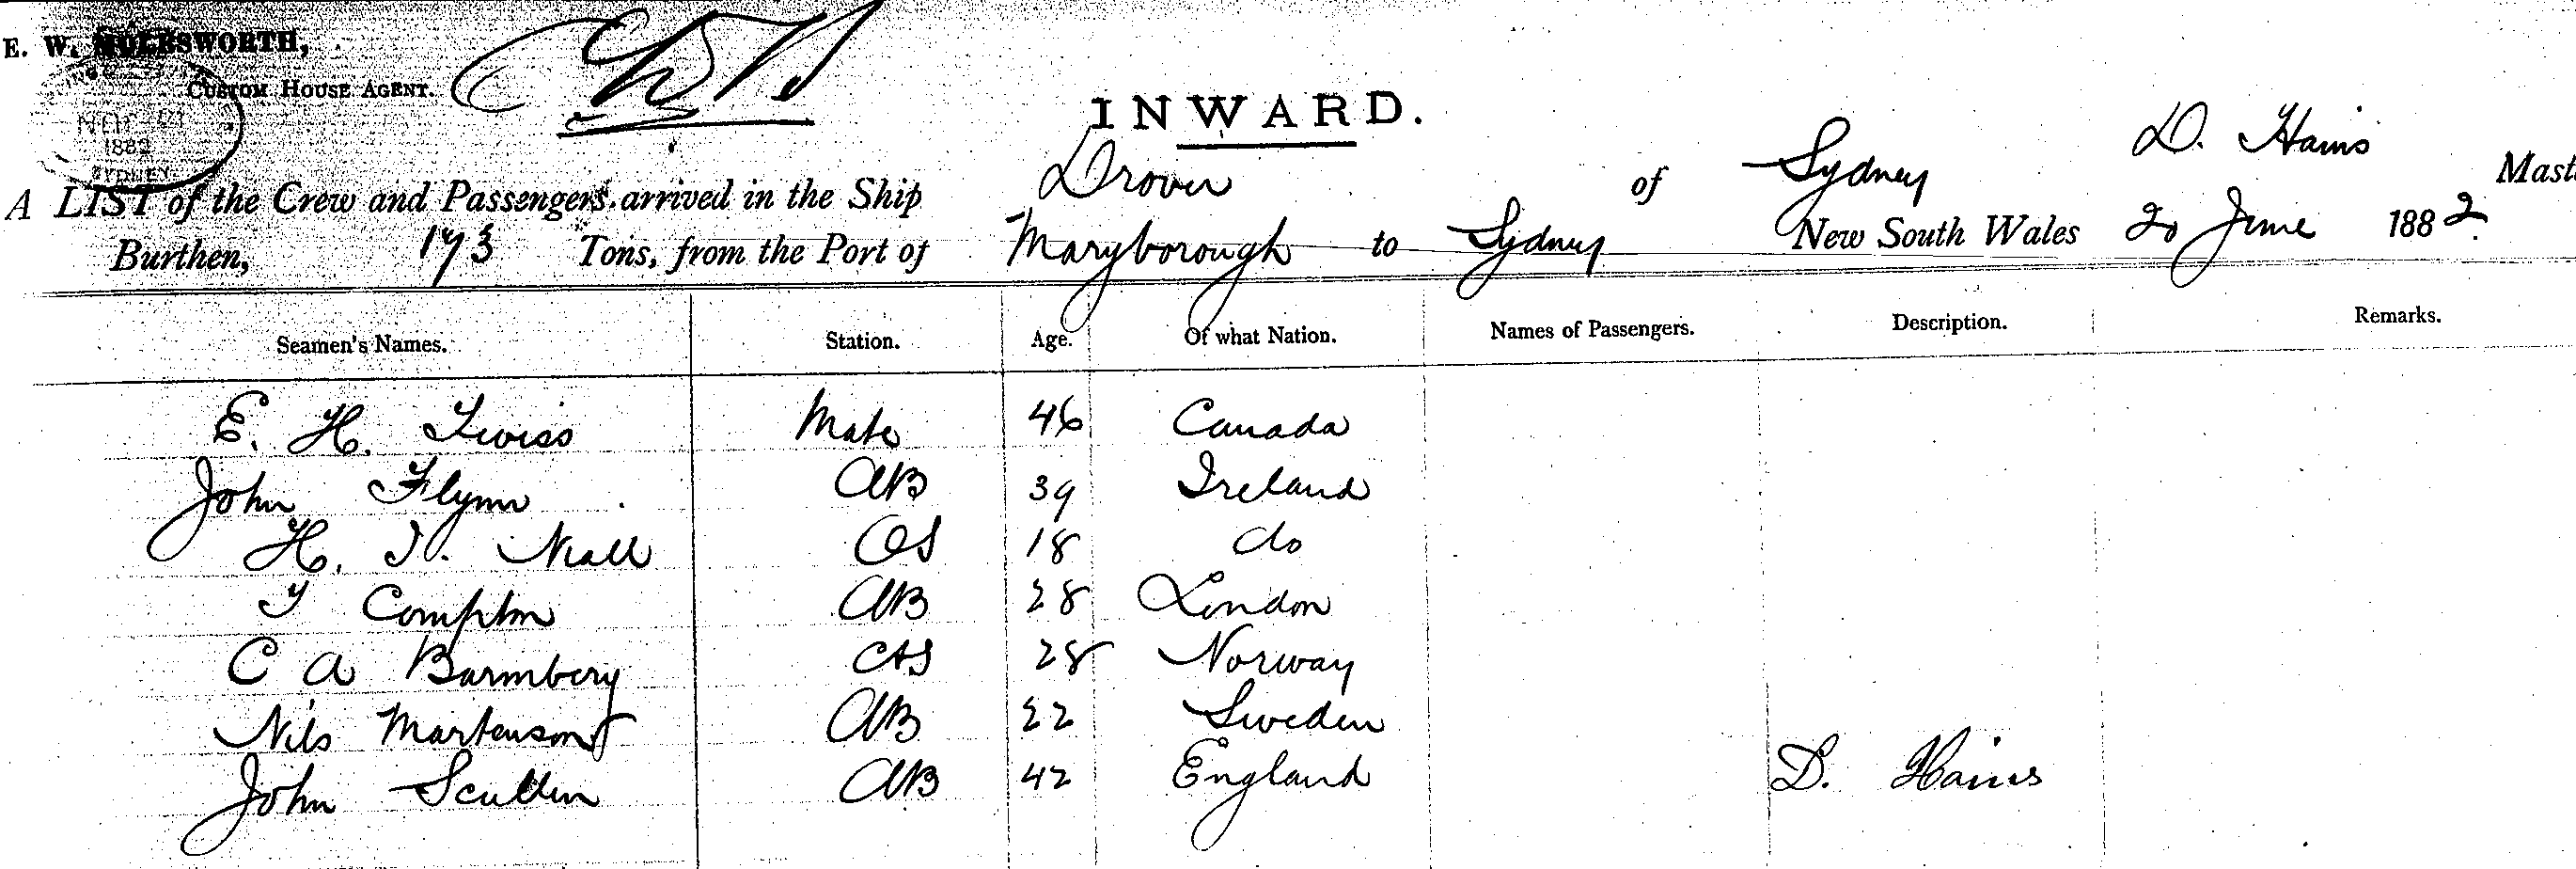 E. W. MOLESWORTH,
CUSTOM HOUSE AGENT.
1882
SYDNEY
INWARD.
A LIST of the Crew and Passengers arrived in the Ship Drover of Sydney D. Hains Mast
Burthen, 173 Tons, from the Port of Maryborough to Sydney New South Wales 20 June 1882.
Seamen's Names. Station. Age. Of what Nation. Names of Passengers. Description. Remarks.
E. H. Twiss Mate 46 Canada
John Flynn AB 39 Ireland
H. J. Niall OS 18 do
T Compton AB 28 London
C A Barmbery 28 Norway
Nils Martenson AB 22 Sweden
John Scullin AB 42 England D. Hains